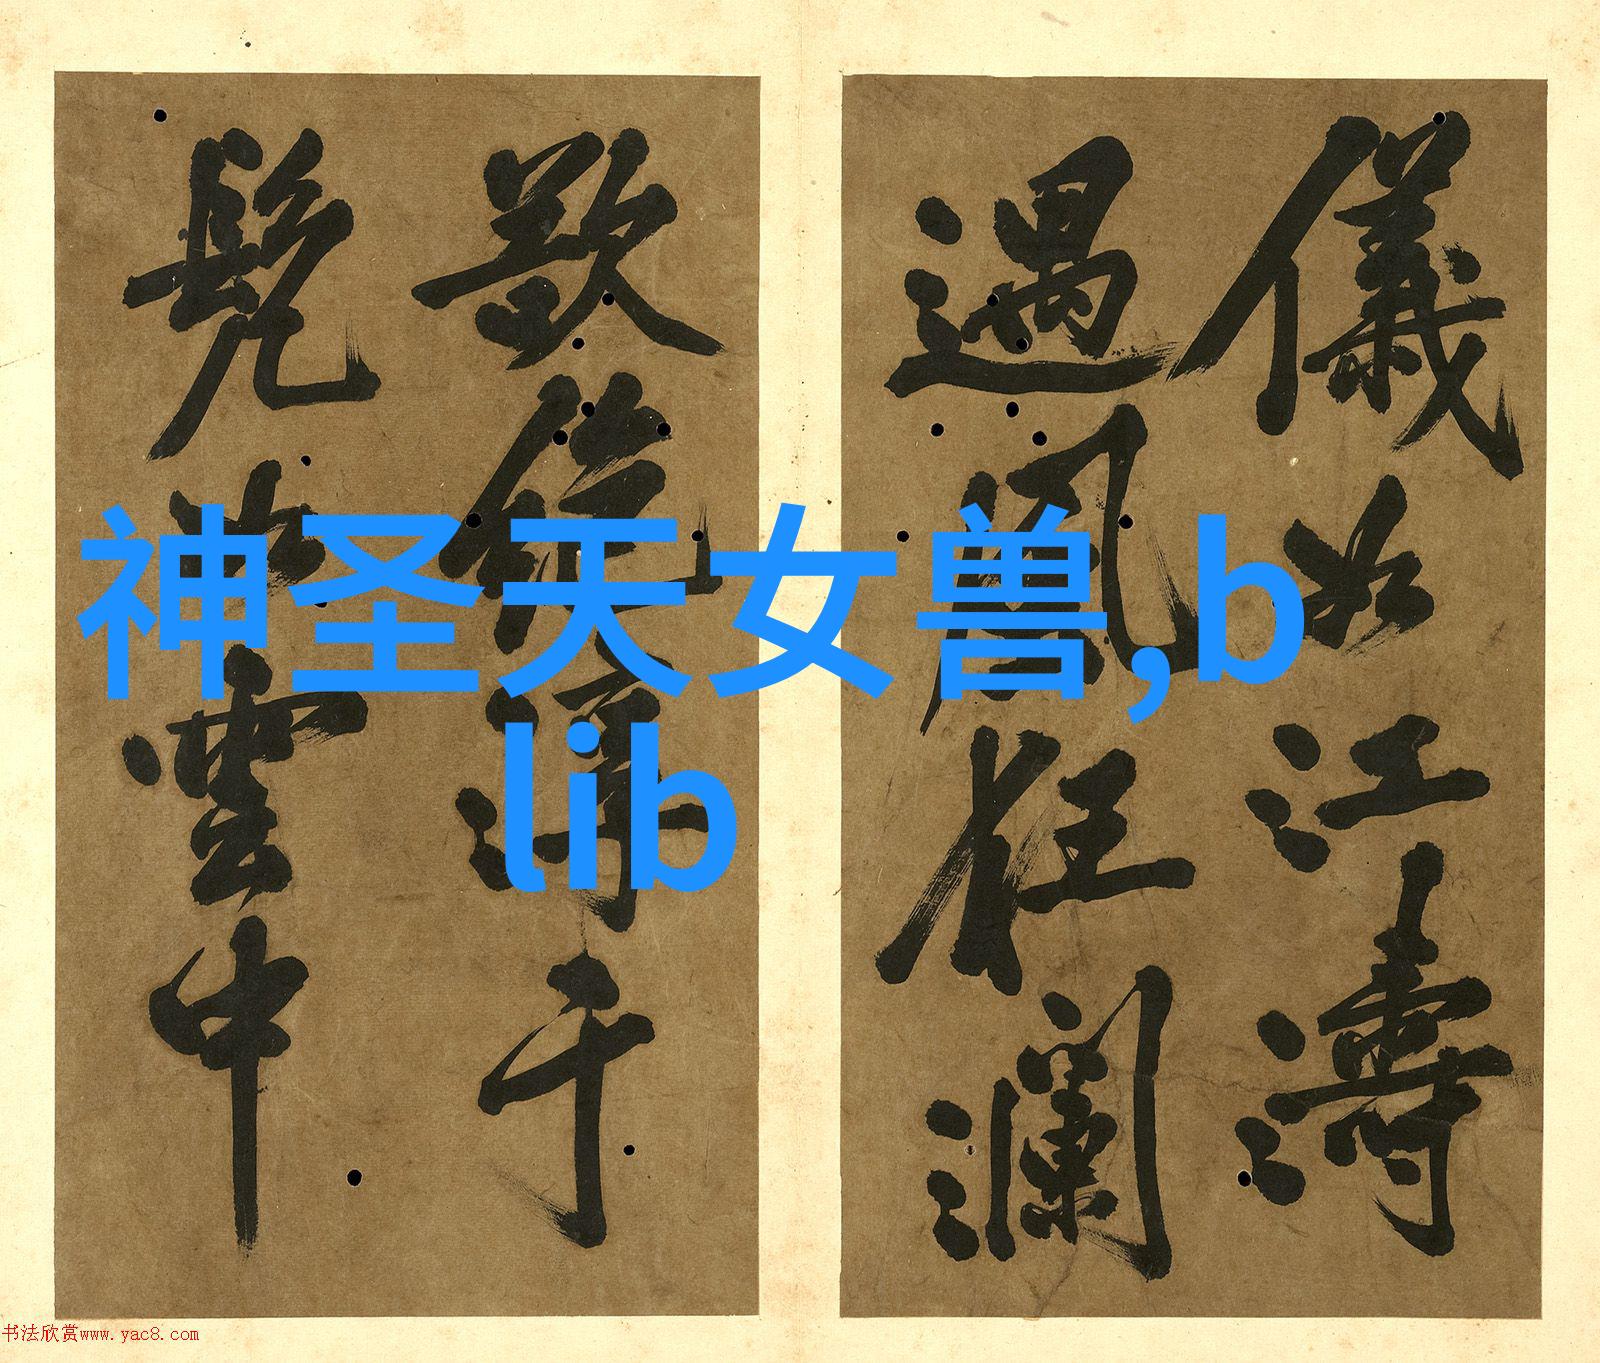 儀如江濤
遇風狂瀾
淳于
髡如雲中
神圣天女兽,b
lib
书法欣赏www.yac8.com